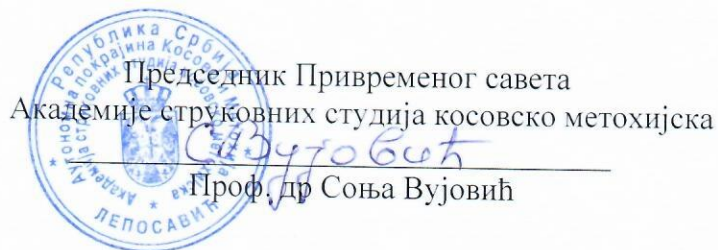 Председник Привременог савета
Академије струковних студија косовско метохијска
СВујовић
Проф. др Соња Вујовић
Република Србија
Аутономна покрајина Косово и Метохија
Академија струковних студија косовско метохијска
ЛЕПОСАВИЋ